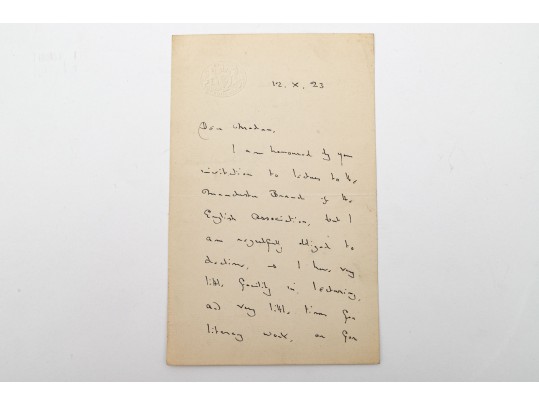 12. X. 23
Dear Madam,
I am honoured by your
invitation to lecture to the
Manchester Branch of the
English Association, but I
am regretfully obliged to
decline, as I have very
little facility in lecturing,
and very little time for
literary work, or for